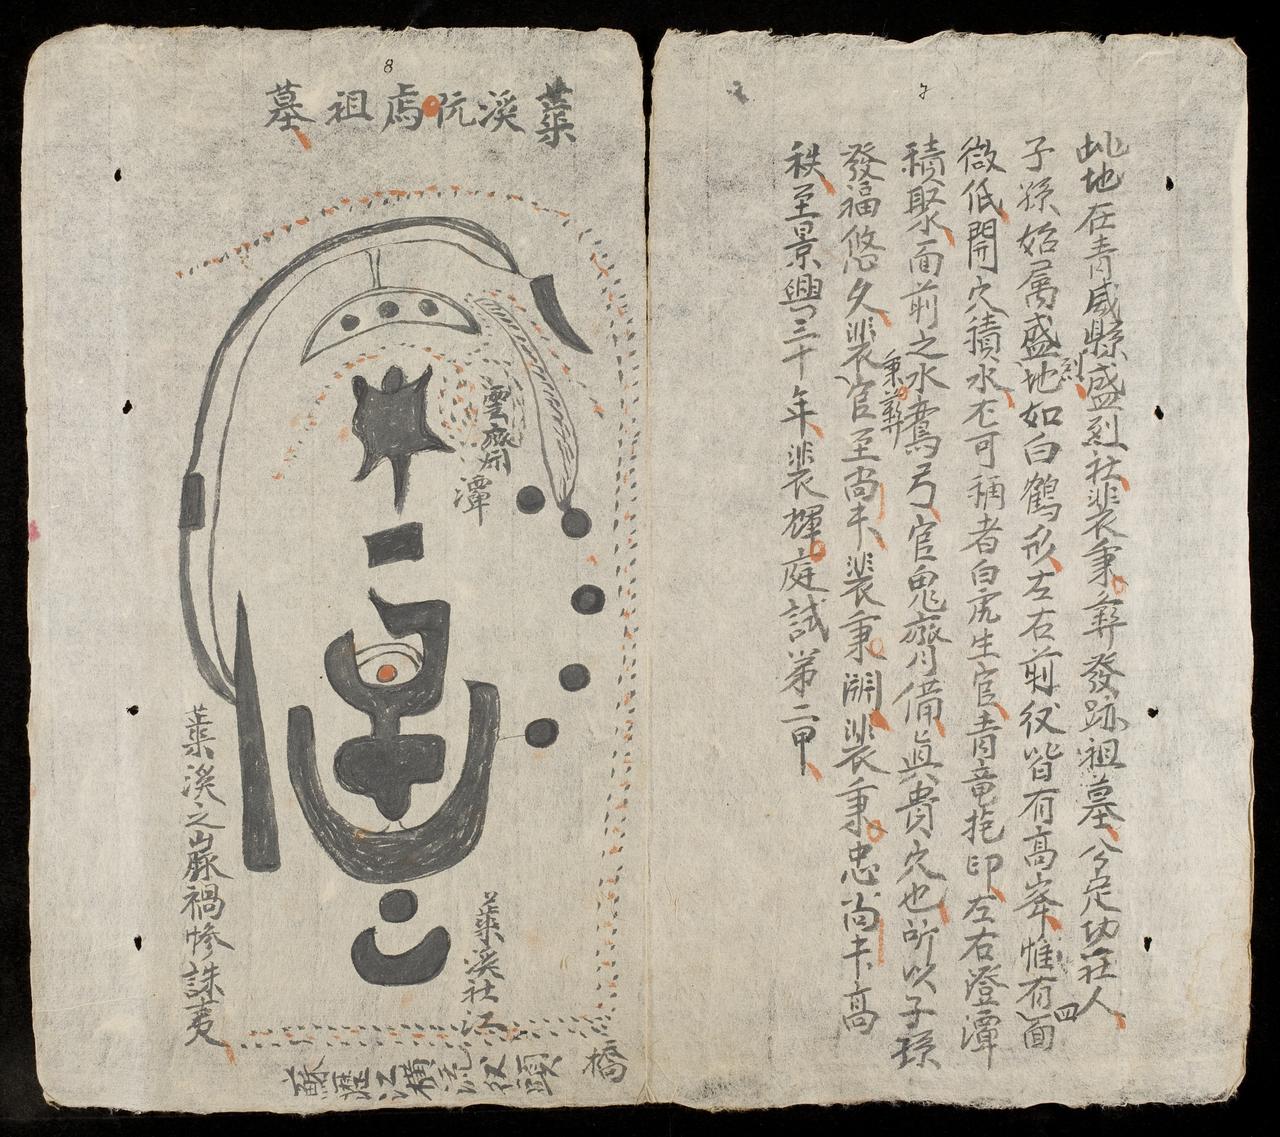 此地在青威縣盛烈社裴秉彞發跡祖墓公定功社人
子孫始居盛烈地如白鶴形左右前後皆有高峯惟有四面
微低開穴積水不可稱者白虎生官青竜抱印左右澄潭
積聚面前之水彎弓官鬼齊備真貴穴也所以子孫
發福悠久裴秉彞官至尚书裴秉淵裴秉忠尚书高
秩至景興三十年裴輝庭試第二甲
8
蘂溪阮爲祖墓
雲齋潭
蘂溪之山厥禍慘誅夷
蘂溪社江
橋
蘇瀝江橫流後頭